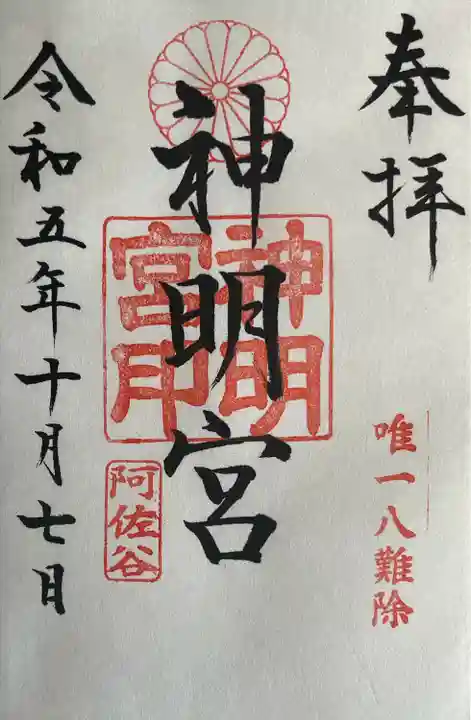 奉拝
唯一八難除
神明宮
神明宮印
阿佐谷
令和五年十月七日